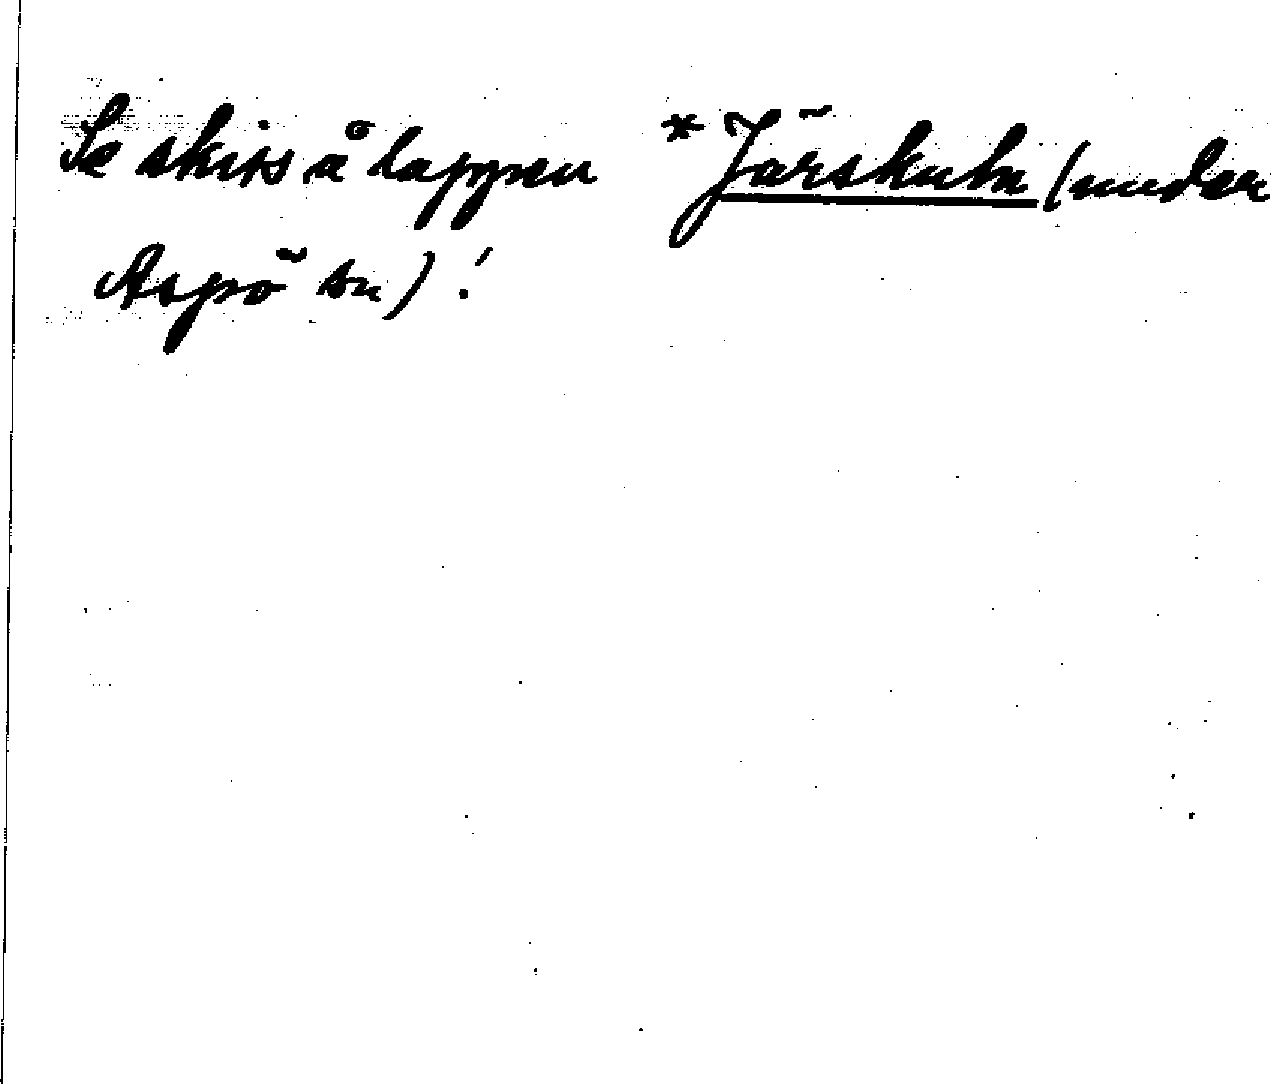 Se skiss å lappen *Järskuln (under
Aspö sn)!